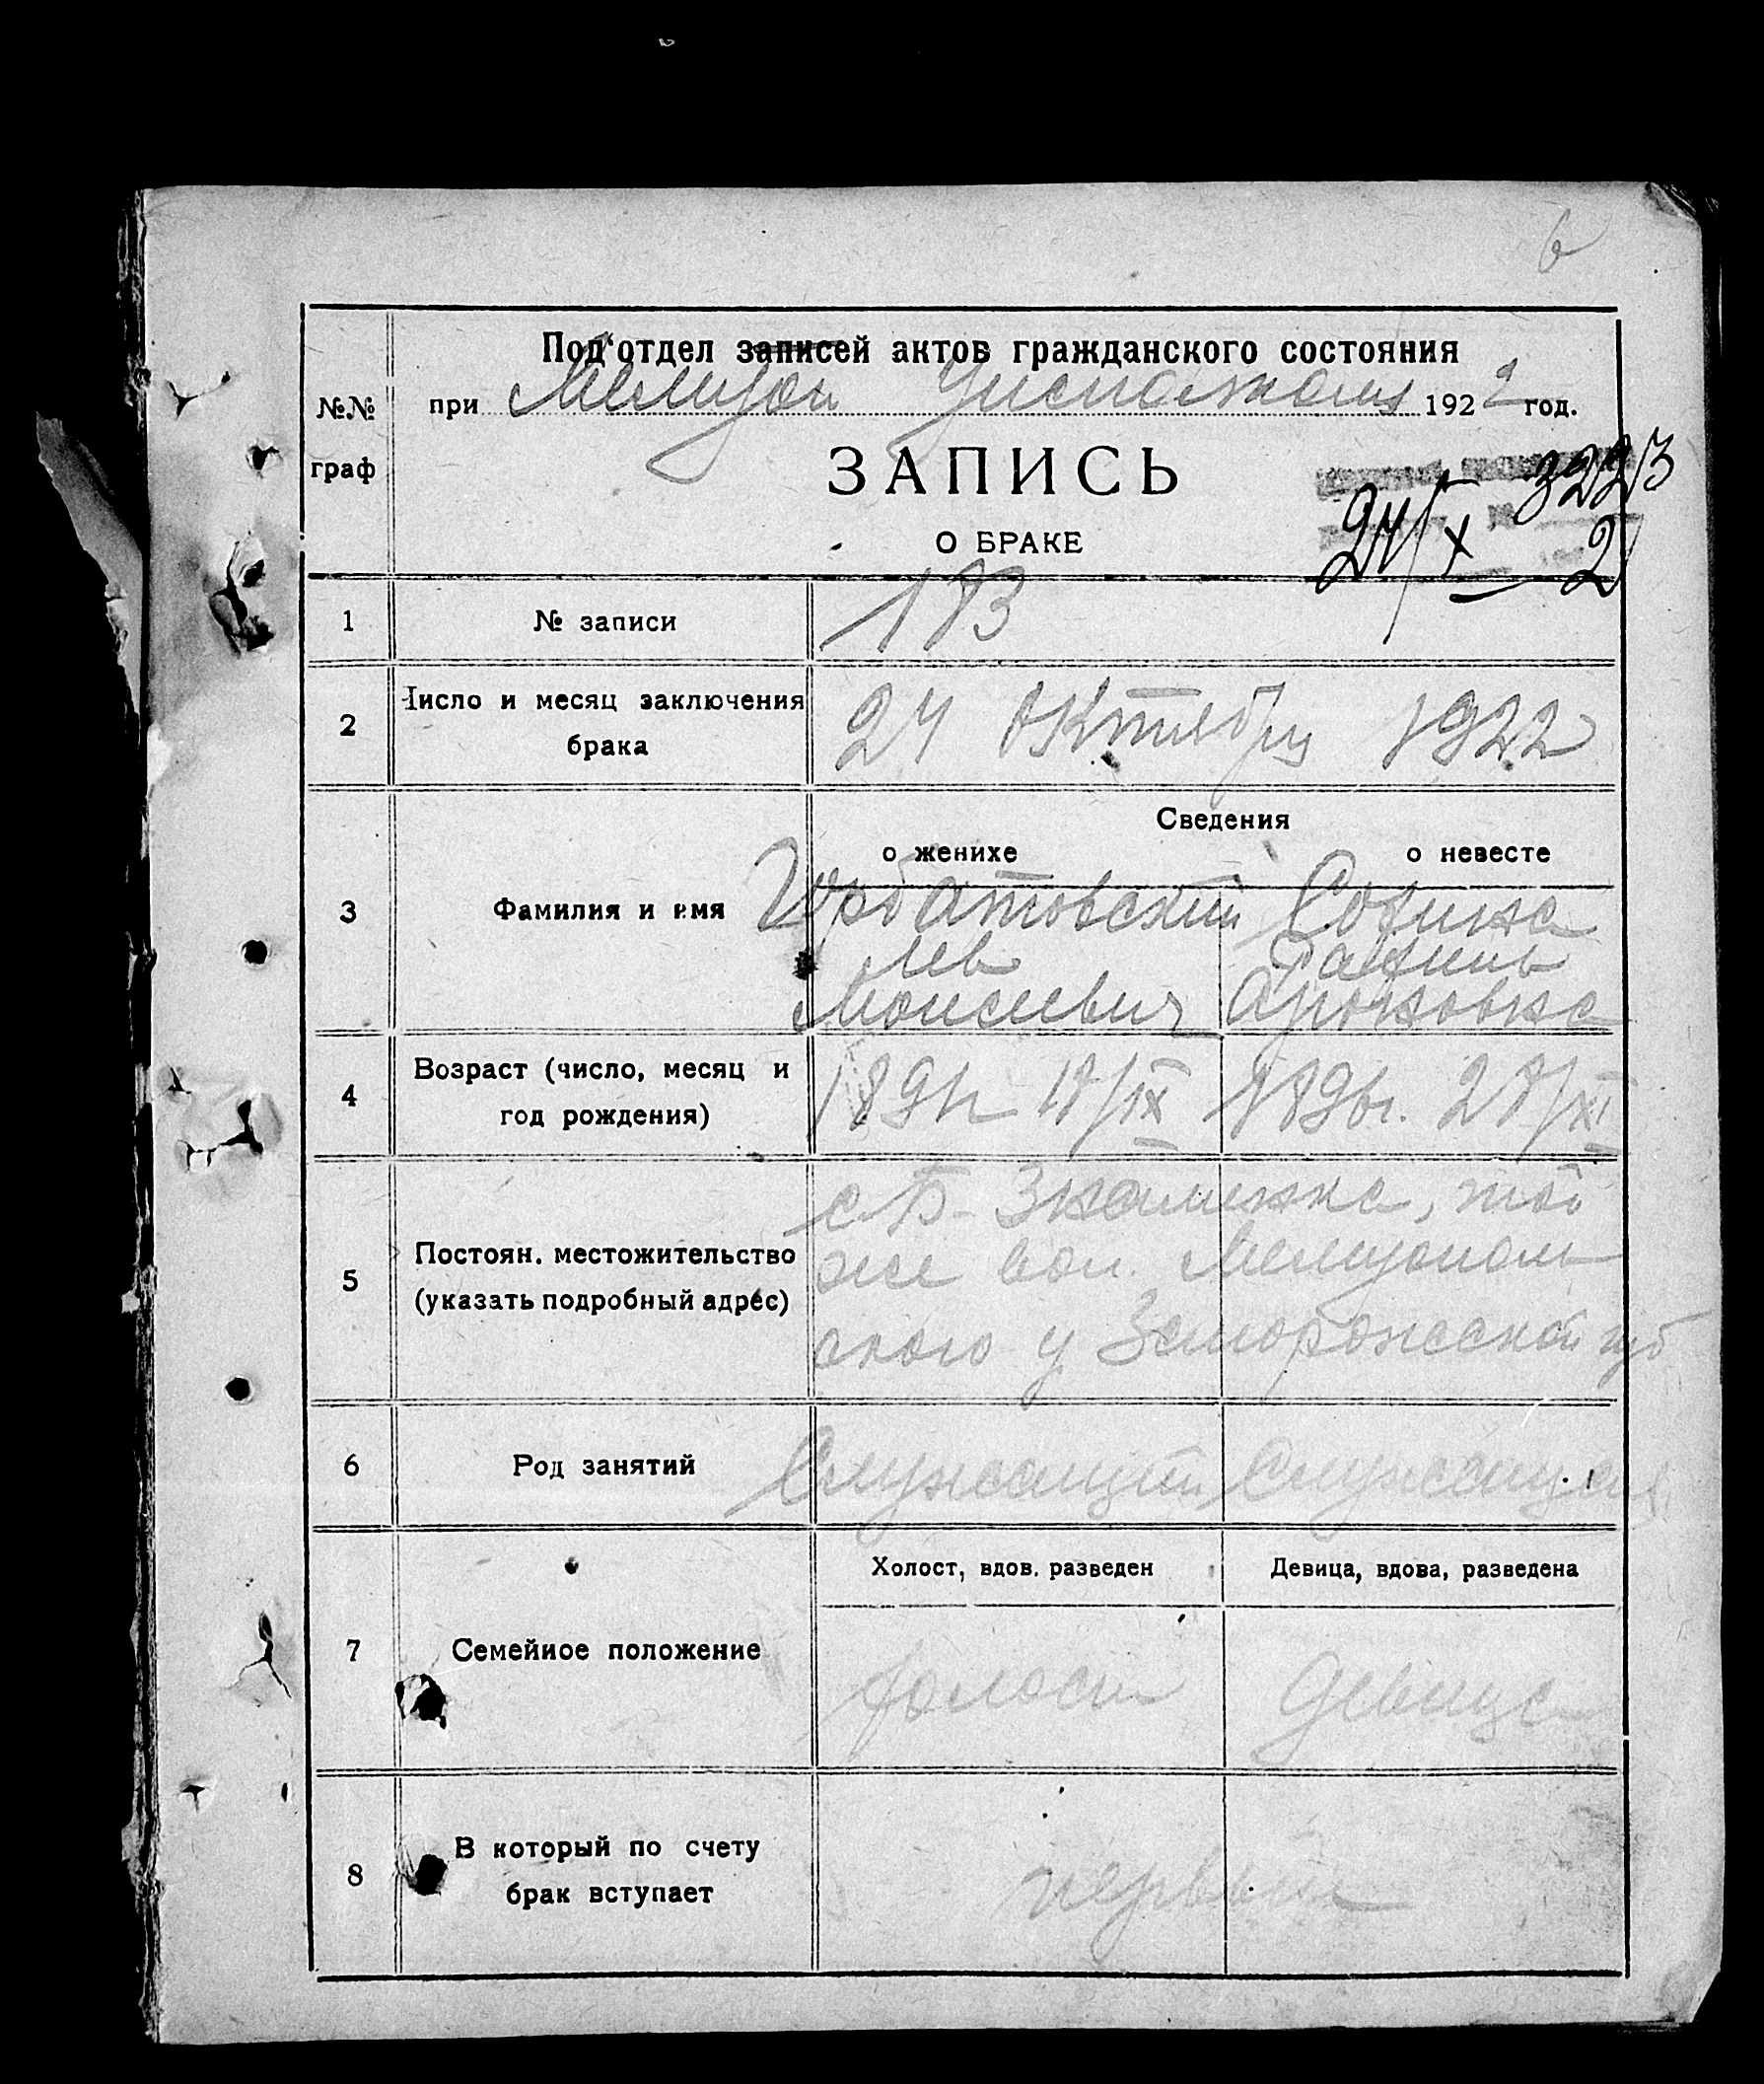 6
Под'отдел записей актов гражданского состояния
№№ при 1922 год.
граф
ЗАПИСЬ
О БРАКЕ
24/X 2
1 № записи 183
2 Число и месяц заключения
брака
24 Октября 1922
Сведения
о женихе о невесте
3 Фамилия и имя
Лев
Моисеевич Ароновна
4 Возраст (число, месяц и
год рождения)
18/IX 1896г. 28/XI
5 Постоян. местожительство
(указать подробный адрес)
с Б-Знаменка, той
же вол. Мелитополь
ского у Запорожской губ
6 Род занятий
Служащий Служащая
7 Семейное положение
Холост, вдов. разведен Девица, вдова, разведена
холост девица
8 В который по счету
брак вступает
первый